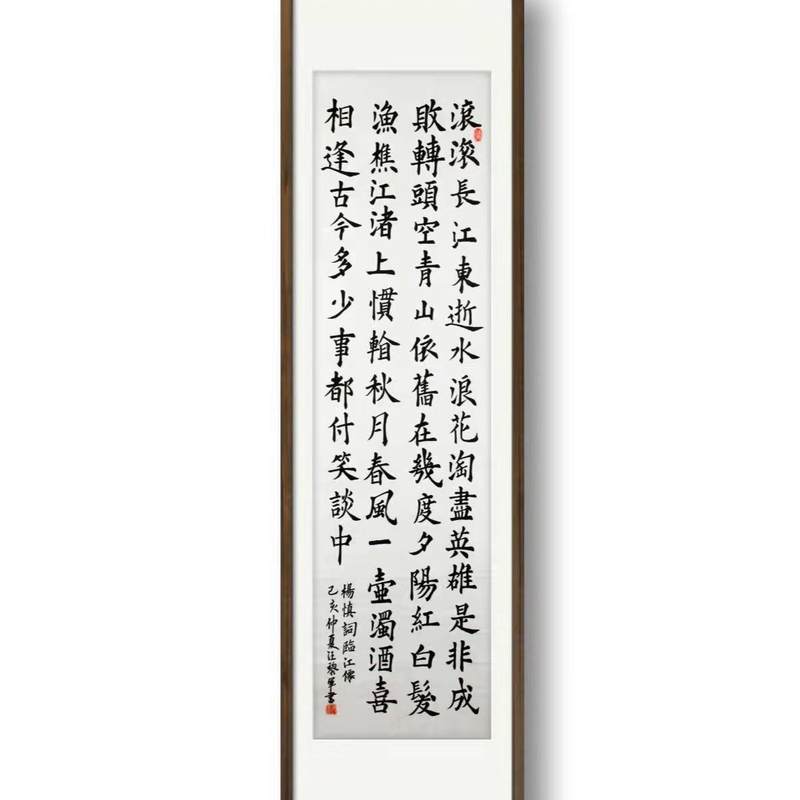 滾滾長江東逝水浪花淘盡英雄是非成
敗轉頭空青山依舊在幾度夕陽紅白髮
漁樵江渚上慣秋月春風一壺濁酒喜
相逢古今多少事都付笑談中
楊慎詞臨江僊
己亥仲夏汪黎書